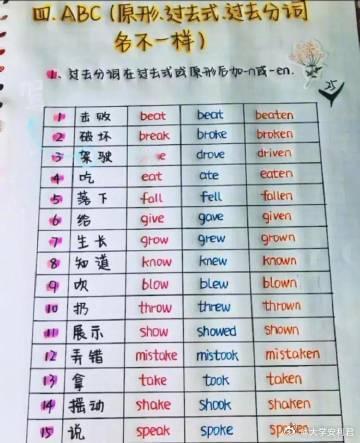 四.ABC(原形.过去式.过去分词
各不一样)
1、过去分词在过去式或原形后加-n或-en.
25
1 击败 beat beat beaten
2 破坏 break broke broken
3 驾驶 drove driven
4 吃 eat ate eaten
5 落下 fall fell fallen
6 给 give gave given
7 生长 grow grew grown
8 知道 know knew known
9 吹 blow blew blown
10 扔 throw threw thrown
11 展示 show showed shown
12 弄错 mistake mistook mistaken
13 拿 take took taken
14 摇动 shake shook shaken
15 说 speak spoke spoken
@大学安利君